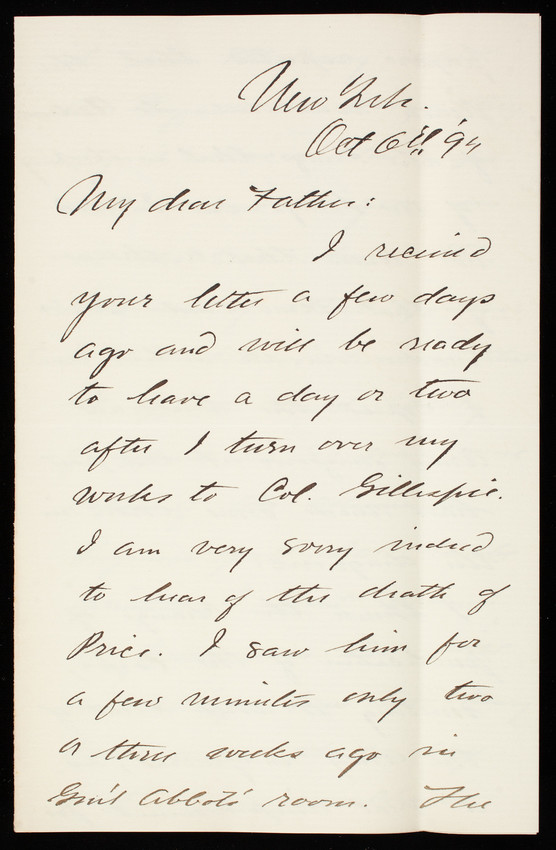 New York.
Oct 6th '94
My dear Father:
I received
your letter a few days
ago and will be ready
to leave a day or two
after I turn over my
works to Col. Gillespie.
I am very sorry indeed
to hear of the death of
Price. I saw him for
a few minutes only two
or three weeks ago in
Gen'l Abbot's room. The